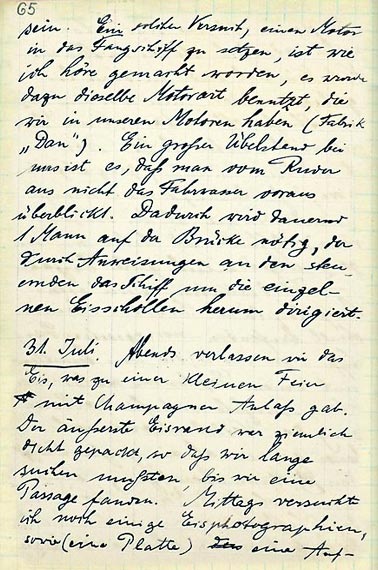 65
sein. Ein solcher Versuch, einen Motor
in das Fangschiff zu setzen, ist wie
ich höre gemacht worden, es wurde
dazu dieselbe Motorart benutzt, die
wir in unseren Motoren haben (Fabrik
„Dan“). Ein großer Übelstand bei
uns ist es, daß man vom Ruder
aus nicht das Fahrwasser voraus
überblickt. Dadurch wird dauernd
1 Mann auf der Brücke nötig, der
durch Anweisungen an den steu-
ernden das Schiff um die einzel-
nen Eisschollen herum dirigiert.
31. Juli. Abends verlassen wir das
Eis, was zu einer kleinen Feier
mit Champagner Anlaß gab.
Der äußerste Eisrand war ziemlich
dicht gepackt, so daß wir lange
suchen mußten, bis wir eine
Passage fanden. Mittags versuchte
ich noch einige Eisphotographien,
sowie (eine Platte) eine Auf-